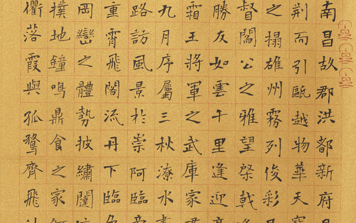 南昌故郡洪都新府
荊而引甌越物華天
之榻雄州霧列俊彩
督閻公之雅望棨戟
勝友如雲千里逢迎
霜王將軍之武庫家
九月序屬三秋潦水
路訪風景於崇阿臨
重霄飛閣流丹下臨
岡巒之體勢披繡闥
撲地鐘鳴鼎食之家
衢落霞與孤鶩齊飛